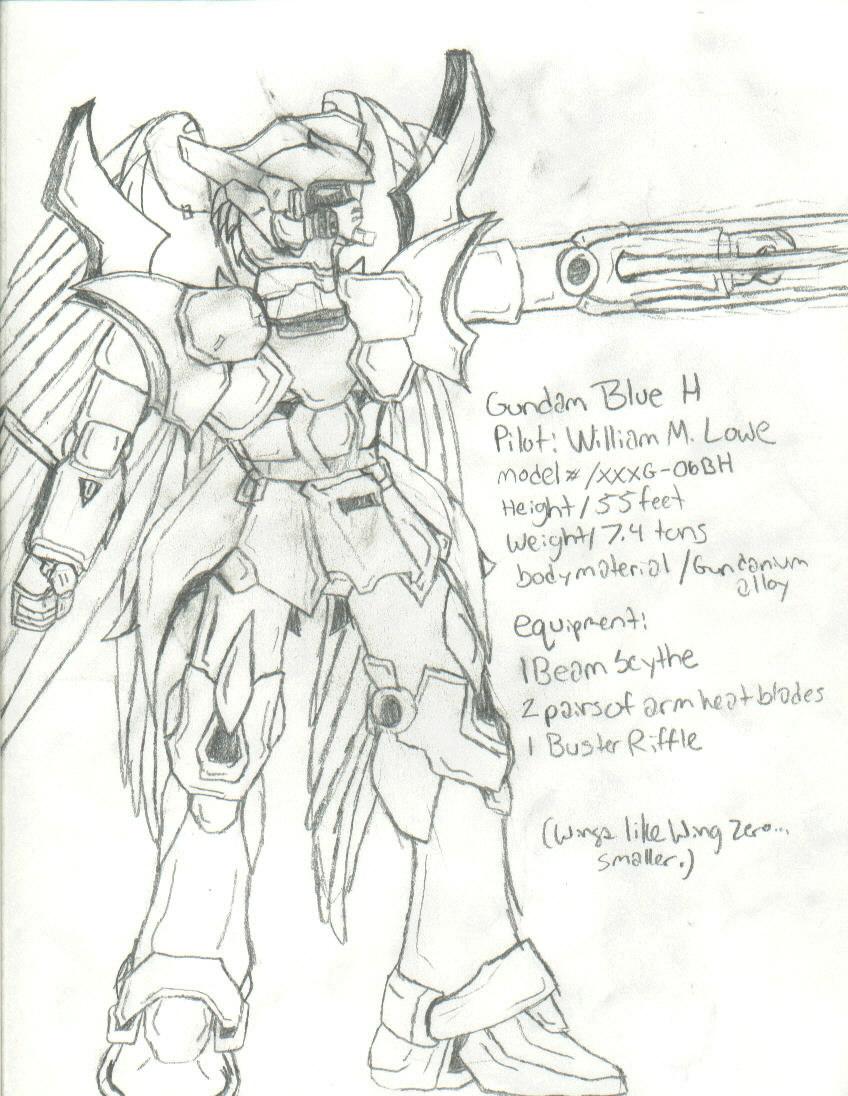 Gundam Blue H
Pilot: William M. Lowe
model #/XXXG-06BH
Height/55feet
Weight/7.4 tons
body material/Gundanium
alloy
equipment:
1 Beam Scythe
2 pairs of arm heat blades
1 Buster Riffle
(Wings like Wing Zero...
smaller.)